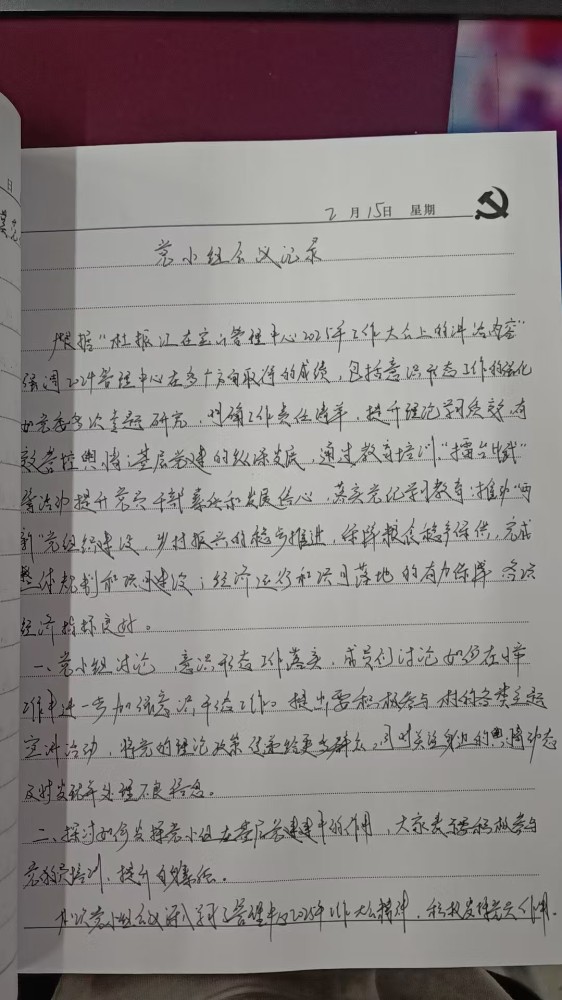 日
2月15日 星期
党小组会议记录
根据"杜振江在宝山管理中心2025年工作大会上的讲话内容"
强调2024管理中心在多个方面取得的成绩，包括意识形态工作的强化
如党委多次专题研究，明确工作责任清单，提升理论学习质效，有
效管控舆情；基层党建的纵深发展，通过教育培训、"擂台比武"
等活动提升党员干部素质和发展信心，落实党纪学习教育；推动"两
新"党组织建设，乡村振兴的稳步推进，保障粮食稳产保供，完成
整体规划和项目建设；经济运行和项目落地的有力保障 各项
经济指标良好。
一、党小组讨论 意识形态工作落实，成员们讨论如何在日常
工作中进一步加强意识形态工作。提出要积极参与村的各类主题
宣讲活动，将党的理论政策传递给更多群众，同时关注身边的舆情动态
及时发现并处理不良信息。
二、探讨如何发挥党小组在基层党建中的作用，大家表示要积极参与
党的培训，提升自身素质。
本次党小组会议深入学习了管理中心2025年工作大会精神，积极发挥党员作用.